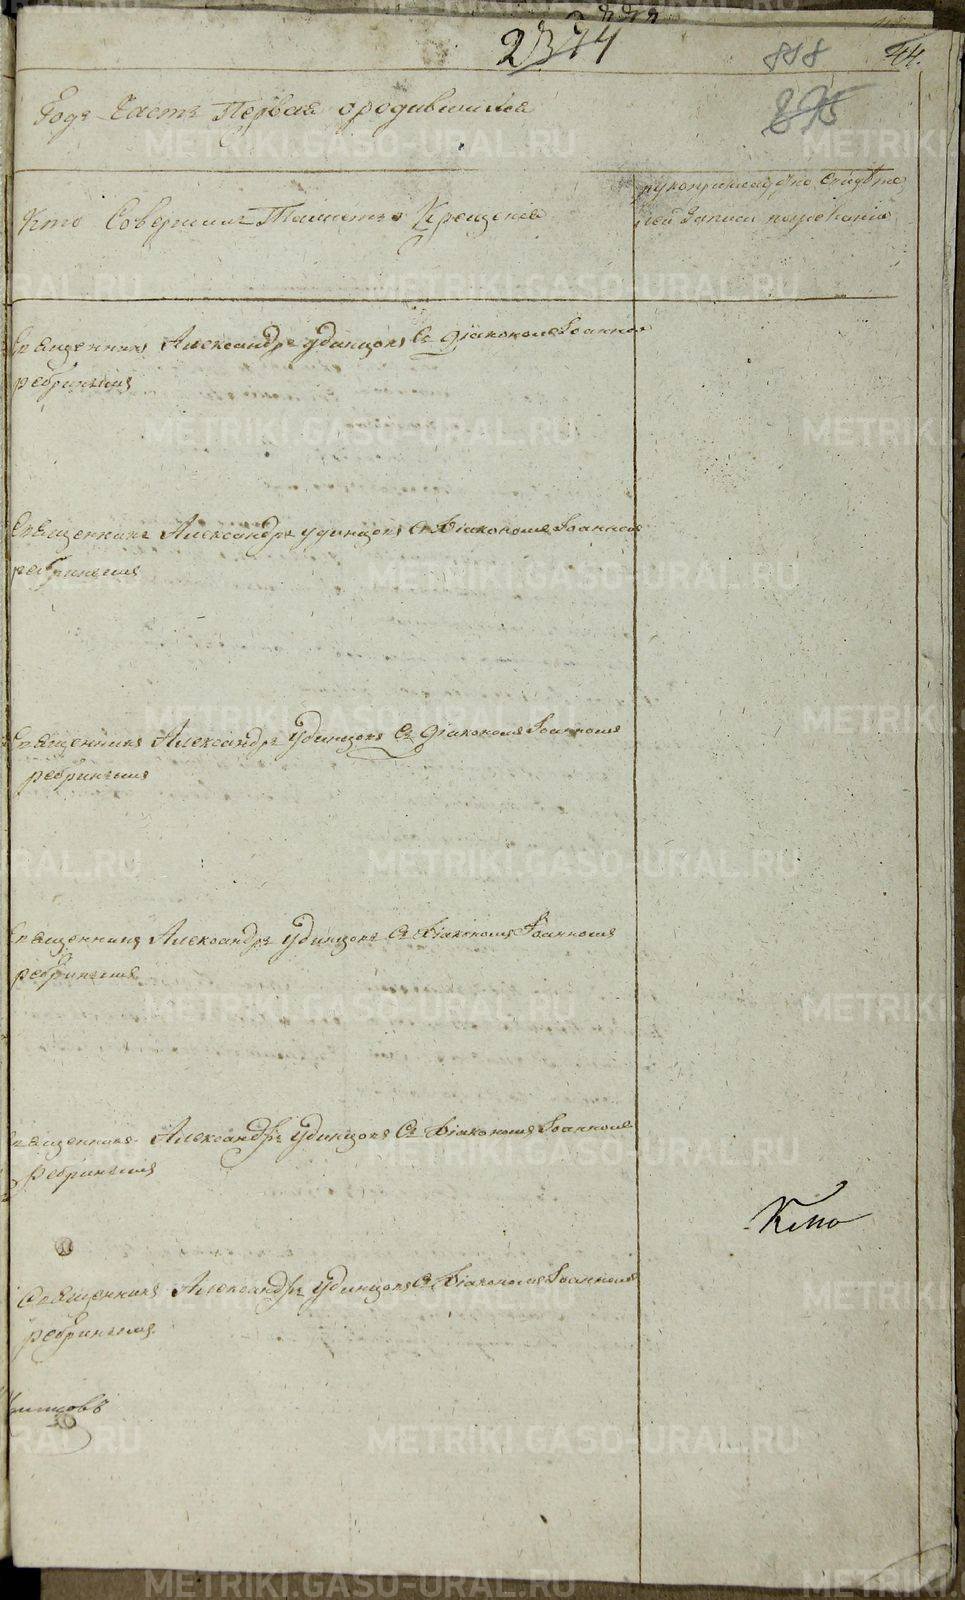 2374
818
44.
895
Годъ Часть Первая ородившихся
Кто Совершилъ Таинство Крещенія
рукоприкладство Свидѣте
лей Записи по желанію
Священникъ Александръ Удинцовъ Съ Діакономъ Іоанномъ
ребринымъ
Священникъ Александръ удинцовъ Съ Діакономъ Іоанномъ
ребринымъ
Священникъ Александръ Удинцовъ Съ Діакономъ Іоанномъ
ребринымъ
Священникъ Александръ Удинцовъ Съ Діакономъ Іоанномъ
ребринымъ
Священникъ Александръ Удинцовъ Съ Діакономъ Іоанномъ
ребринымъ
Священникъ Александръ Удинцовъ Съ Діакономъ Іоанномъ
ребринымъ
METRIKI.GASO-URAL.RU